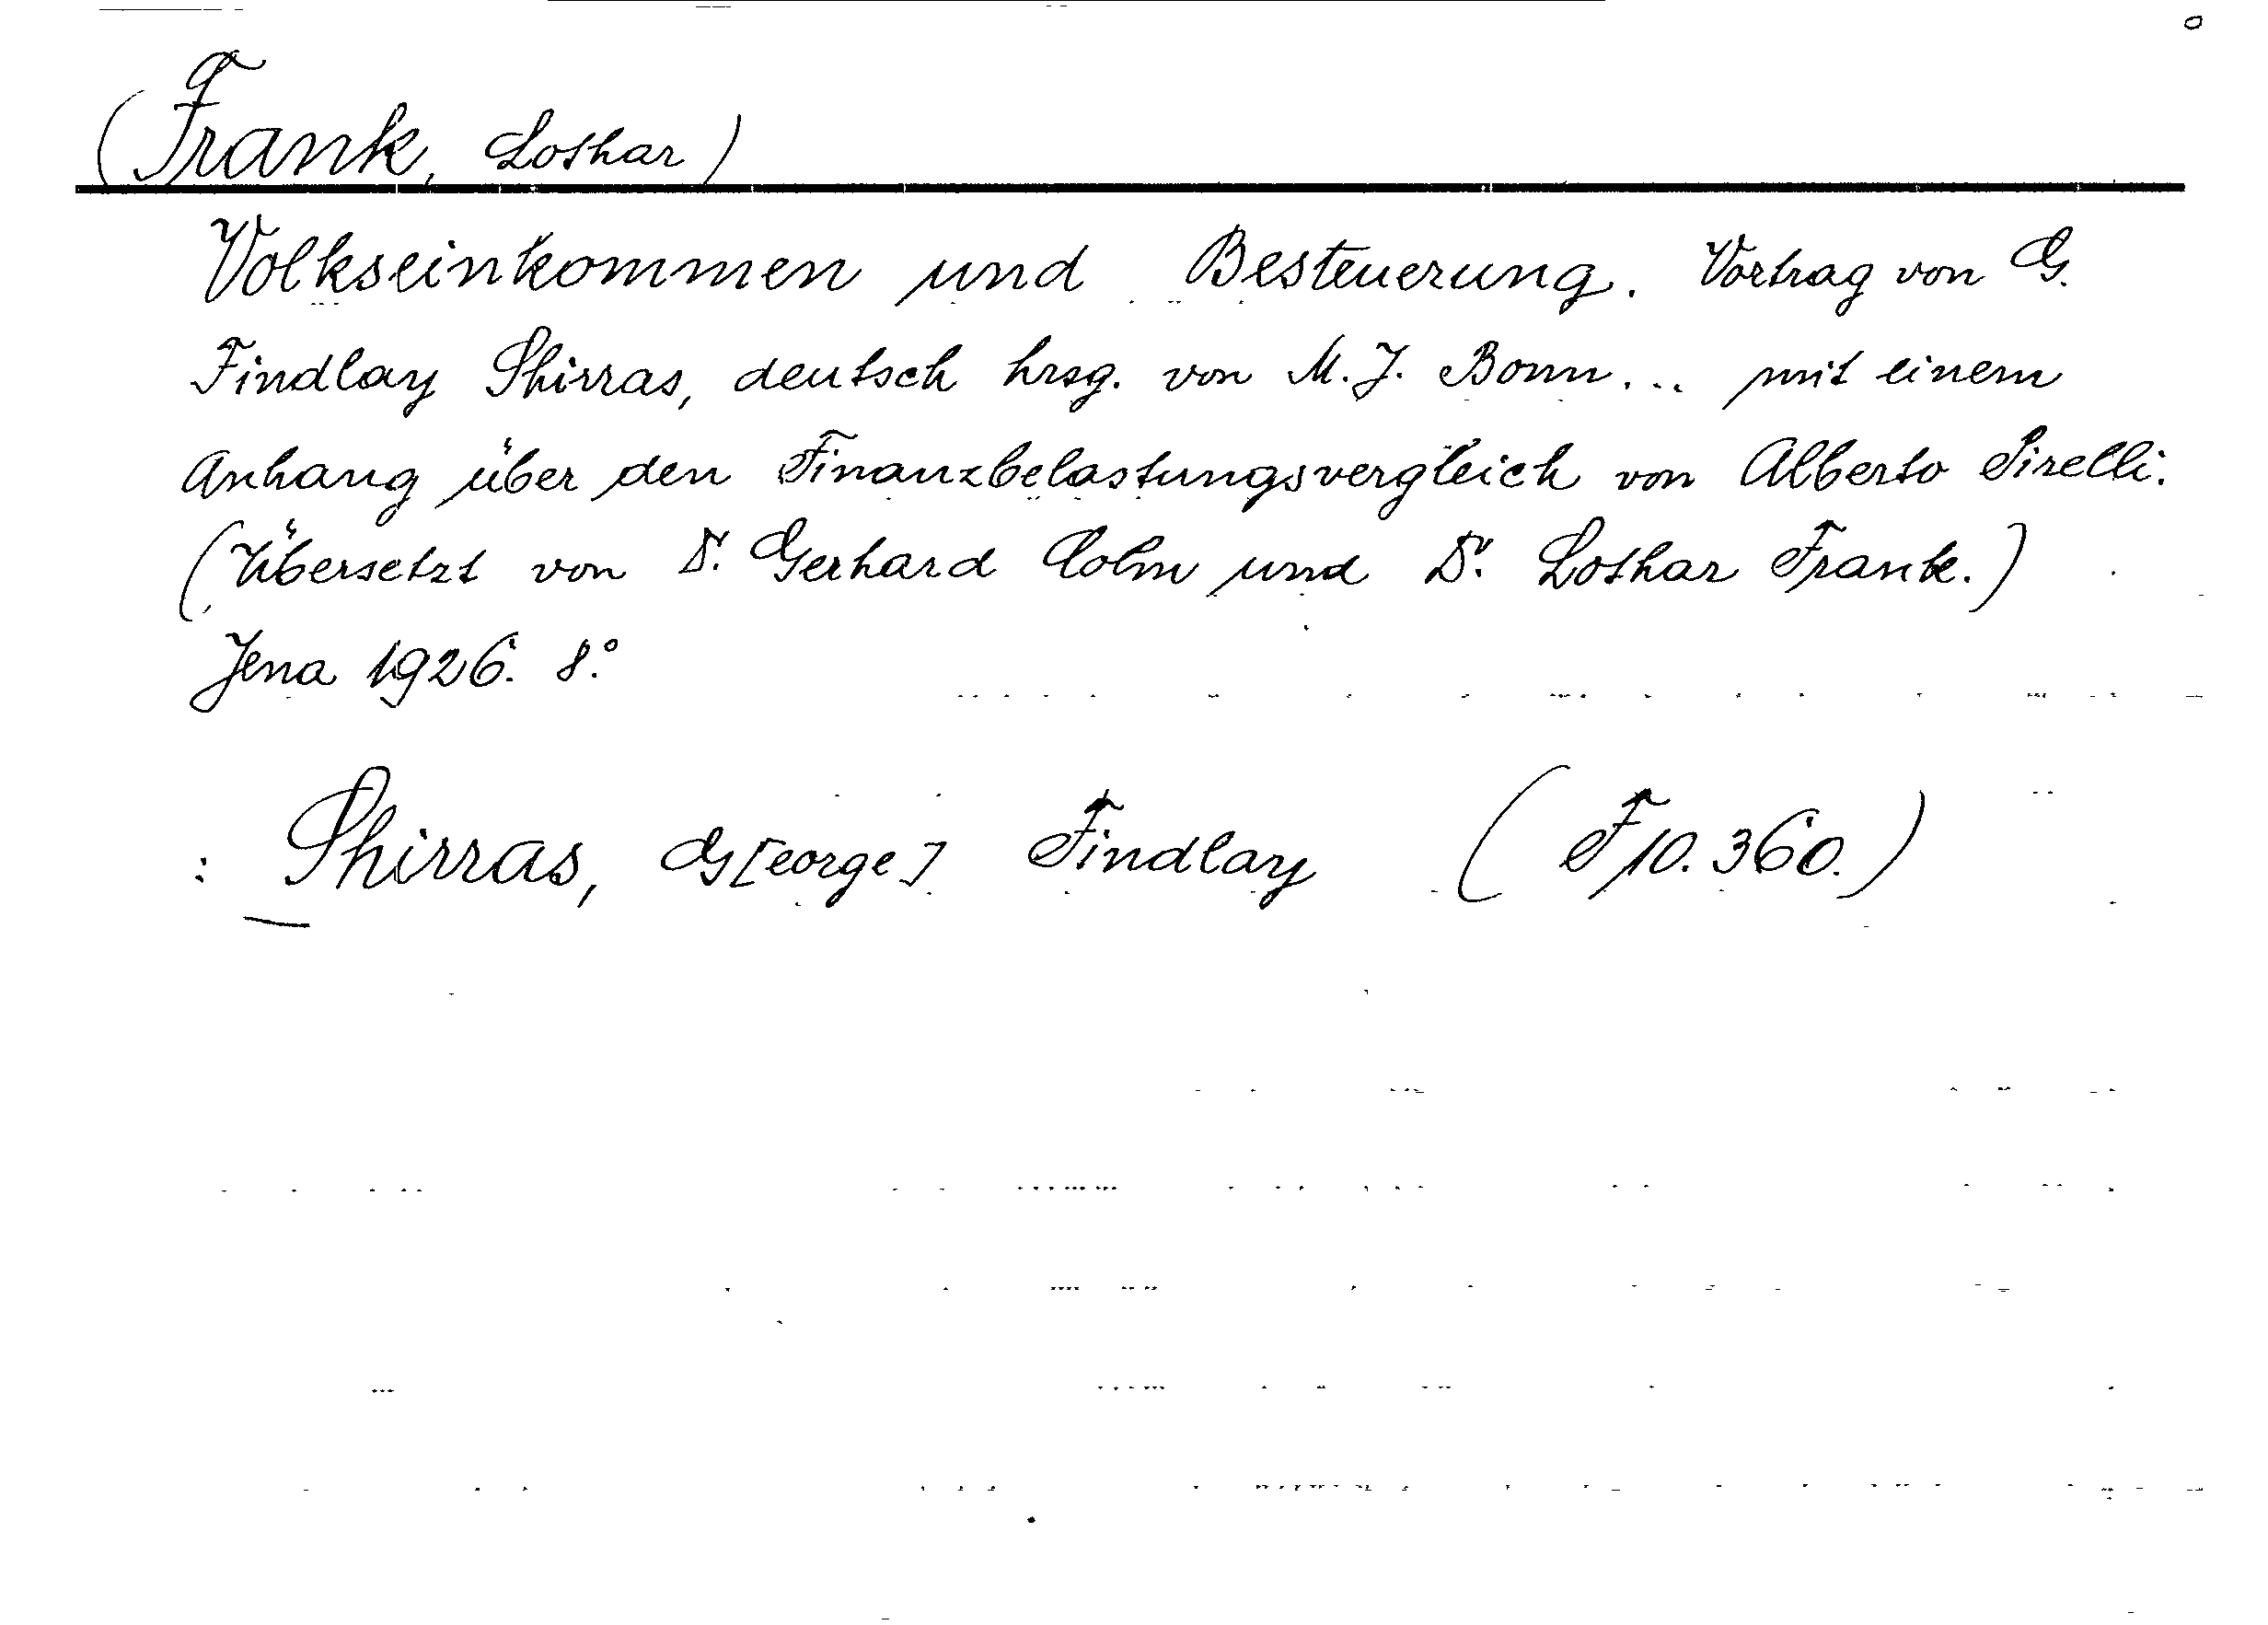 (Frank, Lothar)
Volkseinkommen und Besteuerung. Vortrag von G.
Findlay Shirras, deutsch hrsg. von M. J. Bonn... mit einem
Anhang über den Finanzbelastungsvergleich von Alberto Pirelli.
(Übersetzt von Dr. Gerhard Colm und Dr. Lothar Frank.)
Jena 1926. 8.°
: Shirras, G[eorge] Findlay (F 10.360.)